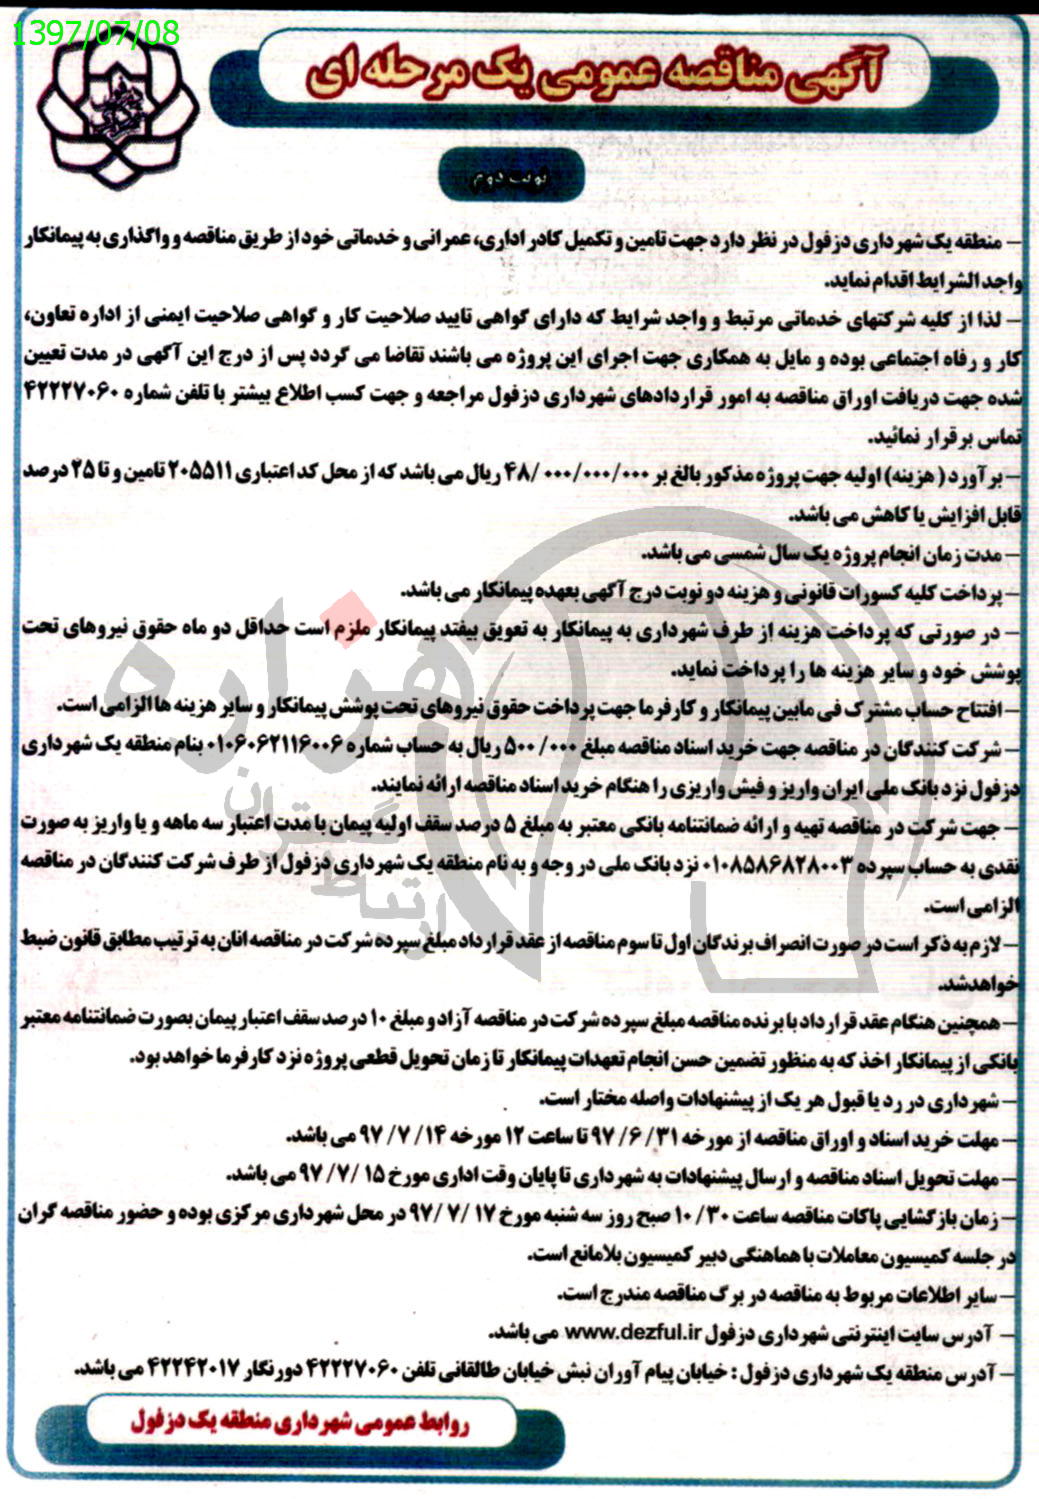 1397/07/08
آگهی مناقصه عمومی یک مرحله ای
نوبت دوم
– منطقه یک شهرداری دزفول در نظر دارد جهت تامین و تکمیل کادر اداری، عمرانی و خدماتی خود از طریق مناقصه و واگذاری به پیمانکار
واجد الشرایط اقدام نماید.
– لذا از کلیه شرکتهای خدماتی مرتبط و واجد شرایط که دارای گواهی تایید صلاحیت کار و گواهی صلاحیت ایمنی از اداره تعاون،
کار و رفاه اجتماعی بوده و مایل به همکاری جهت اجرای این پروژه می باشند تقاضا می گردد پس از درج این آگهی در مدت تعیین
شده جهت دریافت اوراق مناقصه به امور قراردادهای شهرداری دزفول مراجعه و جهت کسب اطلاع بیشتر با تلفن شماره ۴۲۲۲۷۰۶۰
تماس برقرار نمائید.
– برآورد ( هزینه) اولیه جهت پروژه مذکور بالغ بر ۴۸/۰۰۰/۰۰۰/۰۰۰ ریال می باشد که از محل کد اعتباری ۲۰۵۵۱۱ تامین و تا ۲۵ درصد
قابل افزایش یا کاهش می باشد.
– مدت زمان انجام پروژه یک سال شمسی می باشد.
– پرداخت کلیه کسورات قانونی و هزینه دو نوبت درج آگهی بعهده پیمانکار می باشد.
– در صورتی که پرداخت هزینه از طرف شهرداری به پیمانکار به تعویق بیفتد پیمانکار ملزم است حداقل دو ماه حقوق نیروهای تحت
پوشش خود و سایر هزینه ها را پرداخت نماید.
– افتتاح حساب مشترک فی مابین پیمانکار و کارفرما جهت پرداخت حقوق نیروهای تحت پوشش پیمانکار و سایر هزینه ها الزامی است.
– شرکت کنندگان در مناقصه جهت خرید اسناد مناقصه مبلغ ۵۰۰/۰۰۰ ریال به حساب شماره ۰۱۰۶۰۶۲۱۱۶۰۰۶ بنام منطقه یک شهرداری
دزفول نزد بانک ملی ایران واریز و فیش واریزی را هنگام خرید اسناد مناقصه ارائه نمایند.
– جهت شرکت در مناقصه تهیه و ارائه ضمانتنامه بانکی معتبر به مبلغ ۵ درصد سقف اولیه پیمان با مدت اعتبار سه ماهه و یا واریز به صورت
نقدی به حساب سپرده ۰۱۰۸۵۸۶۸۲۸۰۰۳ نزد بانک ملی در وجه و به نام منطقه یک شهرداری دزفول از طرف شرکت کنندگان در مناقصه
الزامی است.
– لازم به ذکر است در صورت انصراف برندگان اول تا سوم مناقصه از عقد قرارداد مبلغ سپرده شرکت در مناقصه انان به ترتیب مطابق قانون ضبط
خواهدشد.
– همچنین هنگام عقد قرارداد با برنده مناقصه مبلغ سپرده شرکت در مناقصه آزاد و مبلغ ۱۰ درصد سقف اعتبار پیمان بصورت ضمانتنامه معتبر
بانکی از پیمانکار اخذ که به منظور تضمین حسن انجام تعهدات پیمانکار تا زمان تحویل قطعی پروژه نزد کارفرما خواهد بود.
– شهرداری در رد یا قبول هر یک از پیشنهادات واصله مختار است.
– مهلت خرید اسناد و اوراق مناقصه از مورخه ۹۷/۶/۳۱ تا ساعت ۱۲ مورخه ۹۷/۷/۱۴ می باشد.
– مهلت تحویل اسناد مناقصه و ارسال پیشنهادات به شهرداری تا پایان وقت اداری مورخ ۹۷/۷/۱۵ می باشد.
– زمان بازگشایی پاکات مناقصه ساعت ۱۰/۳۰ صبح روز سه شنبه مورخ ۹۷/۷/۱۷ در محل شهرداری مرکزی بوده و حضور مناقصه گران
در جلسه کمیسیون معاملات با هماهنگی دبیر کمیسیون بلامانع است.
– سایر اطلاعات مربوط به مناقصه در برگ مناقصه مندرج است.
– آدرس سایت اینترنتی شهرداری دزفول www.dezful.ir می باشد.
– آدرس منطقه یک شهرداری دزفول : خیابان پیام آوران نبش خیابان طالقانی تلفن ۴۲۲۲۷۰۶۰ دورنگار ۴۲۲۴۲۰۱۷ می باشد.
روابط عمومی شهرداری منطقه یک دزفول
هزاره
گستران
ارتباط